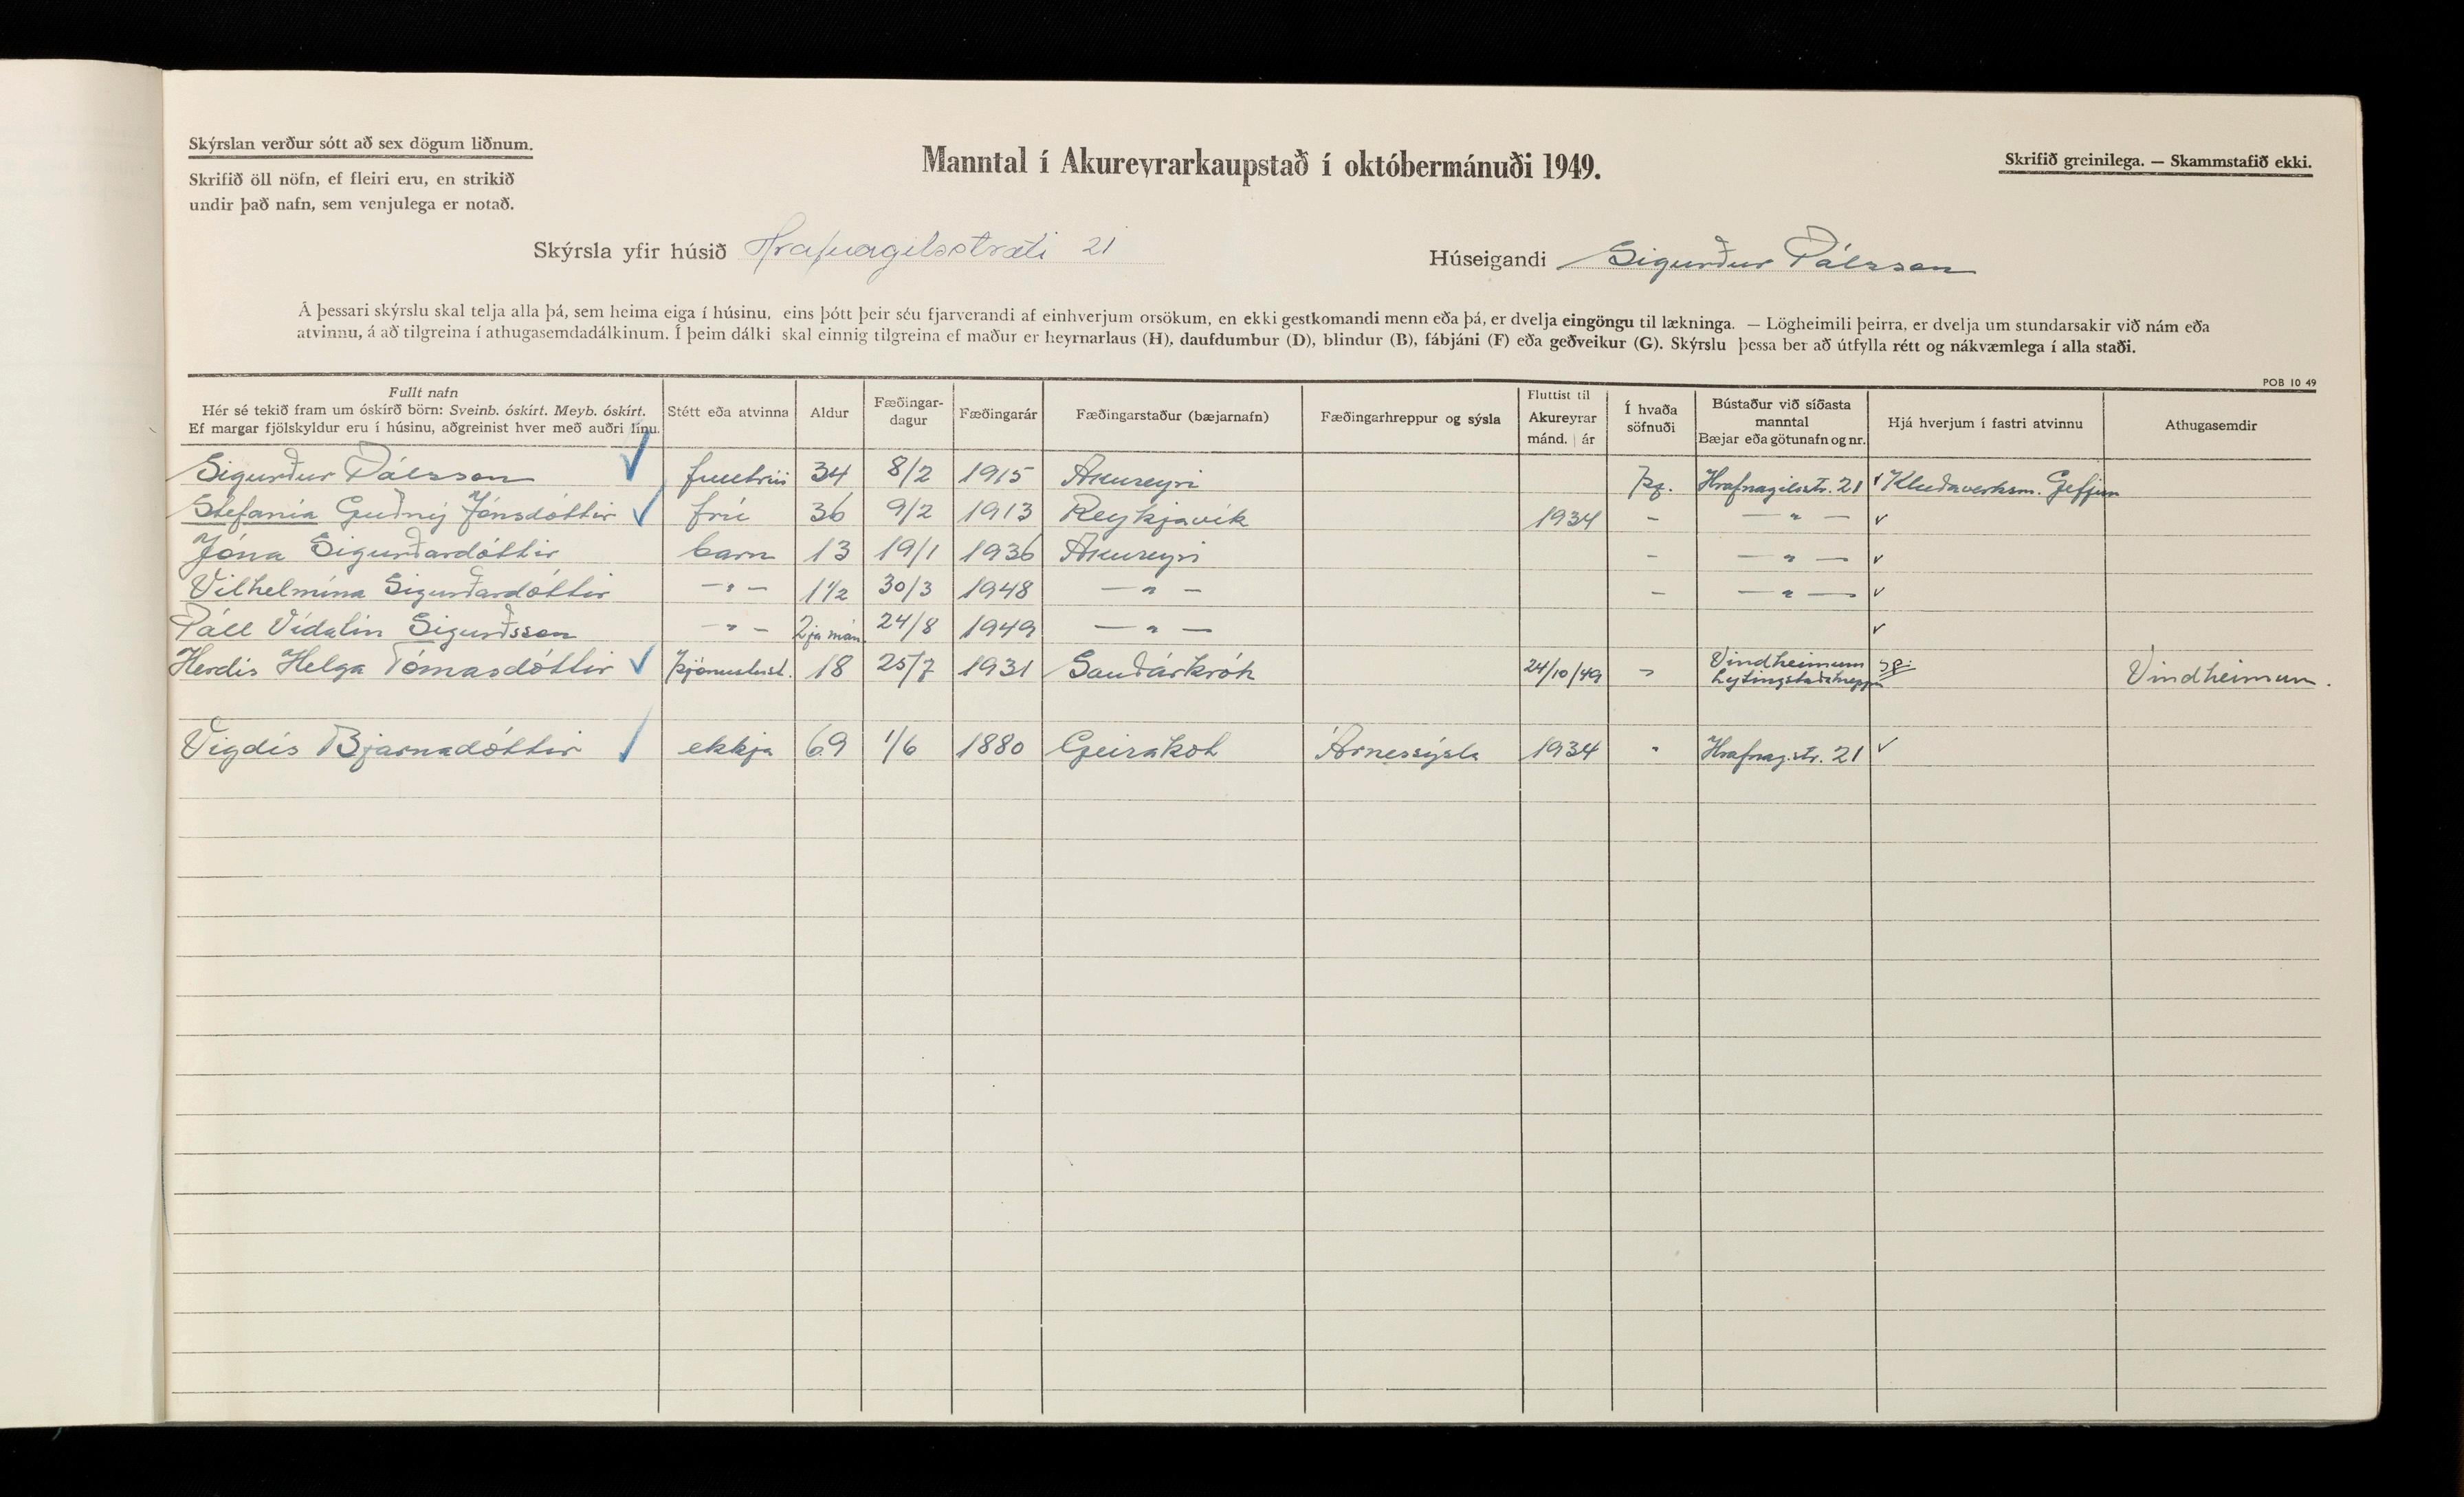 Skýrslan verður sótt að sex dögum liðnum.
Skrifið öll nöfn, ef fleiri eru, en strikið
undir það nafn, sem venjulega er notað.
Manntal í Akureyrarkaupstað í októbermánuði 1949.
Skrifið greinilega. — Skammstafið ekki.
Skýrsla yfir húsið Hrafnagilsstræti 21
Húseigandi Sigurður Pálsson
Á þessari skýrslu skal telja alla þá, sem heima eiga í húsinu, eins þótt þeir séu fjarverandi af einhverjum orsökum, en ekki gestkomandi menn eða þá, er dvelja eingöngu til lækninga. — Lögheimili þeirra, er dvelja um stundarsakir við nám eða
atvinnu, á að tilgreina í athugasemdadálkinum. Í þeim dálki skal einnig tilgreina ef maður er heyrnarlaus (H), daufdumbur (D), blindur (B), fábjáni (F) eða geðveikur (G). Skýrslu þessa ber að útfylla rétt og nákvæmlega í alla staði.
POB 10 49
Fullt nafn
Hér sé tekið fram um óskírð börn: Sveinb. óskírt. Meyb. óskírt.
Ef margar fjölskyldur eru í húsinu, aðgreinist hver með auðri línu.
Stétt eða atvinna
Aldur
Fæðingar-
dagur
Fæðingarár
Fæðingarstaður (bæjarnafn)
Fæðingarhreppur og sýsla
Fluttist til
Akureyrar
mánd. | ár
Í hvaða
söfnuði
Bústaður við síðasta
manntal
Bæjar eða götunafn og nr.
Hjá hverjum í fastri atvinnu
Athugasemdir
Sigurður Pálsson 34 8/2 1915 Akureyri Þj. Hrafnagilsstr. 21 Klæðaverksm. Gefjun
Stefanía Guðný Jónsdóttir frú 36 9/2 1913 Reykjavík 1934 - — " —
Jóna Sigurðardóttir barn 13 19/1 1936 Akureyri - — " —
Vilhelmína Sigurðardóttir — " — 1 1/2 30/3 1948 — " — - — " —
Páll Vídalín Sigurðsson — " — 2ja mán. 24/8 1949 — " —
Herdís Helga Tómasdóttir þjónustust. 18 25/7 1931 Sauðárkrók 24/10/49 " Vindheimum Vindheimum.
Lýtingsstaðahreppi
Vigdís Bjarnadóttir ekkja 69 1/6 1880 Geirakot Árnessýsla 1934 " Hrafnag.str. 21